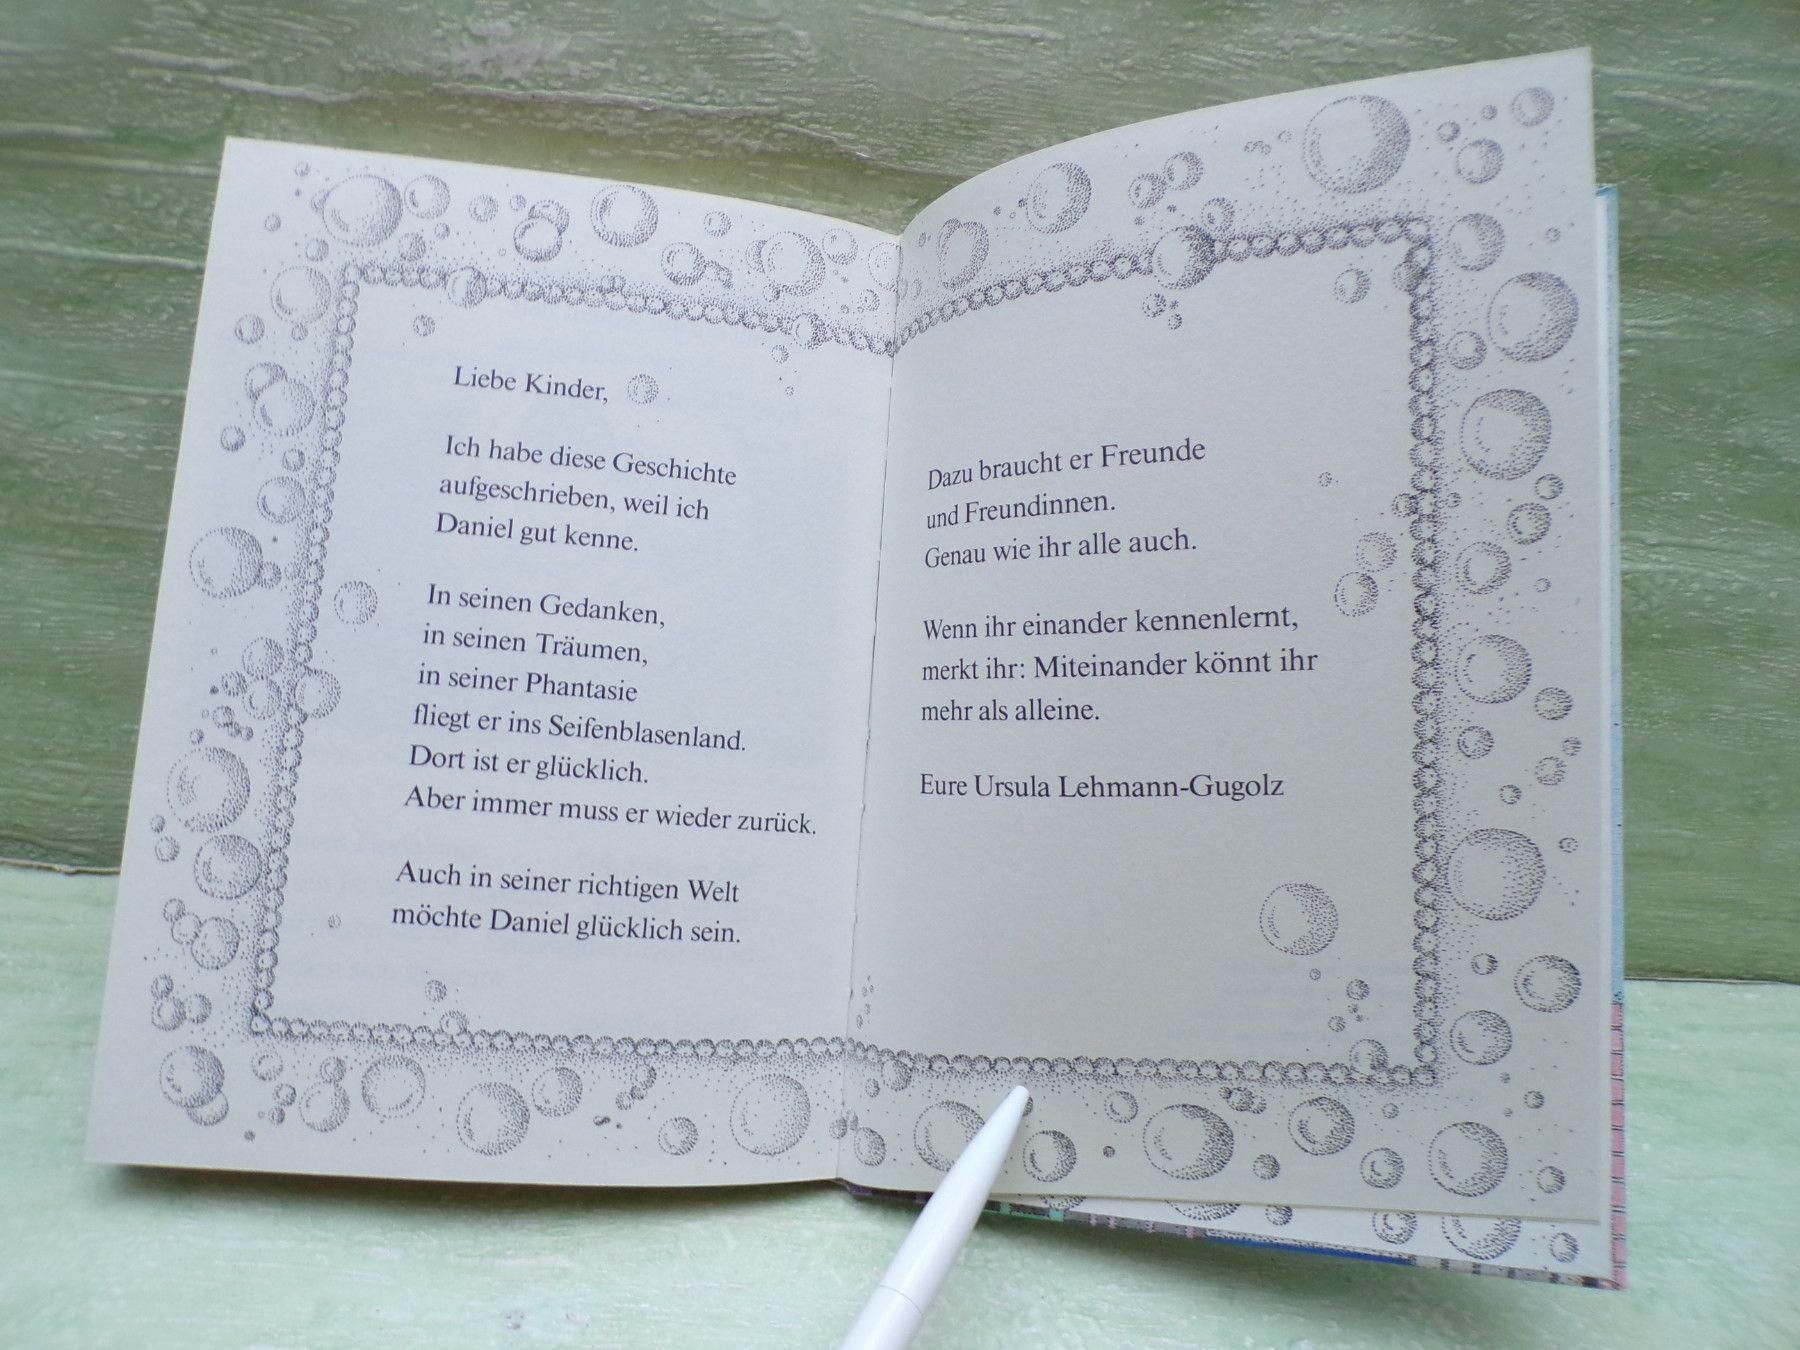 Liebe Kinder,
Ich habe diese Geschichte
aufgeschrieben, weil ich
Daniel gut kenne.
In seinen Gedanken,
in seinen Träumen,
in seiner Phantasie
fliegt er ins Seifenblasenland.
Dort ist er glücklich.
Aber immer muss er wieder zurück.
Auch in seiner richtigen Welt
möchte Daniel glücklich sein.
Dazu braucht er Freunde
und Freundinnen.
Genau wie ihr alle auch.
Wenn ihr einander kennenlernt,
merkt ihr: Miteinander könnt ihr
mehr als alleine.
Eure Ursula Lehmann-Gugolz